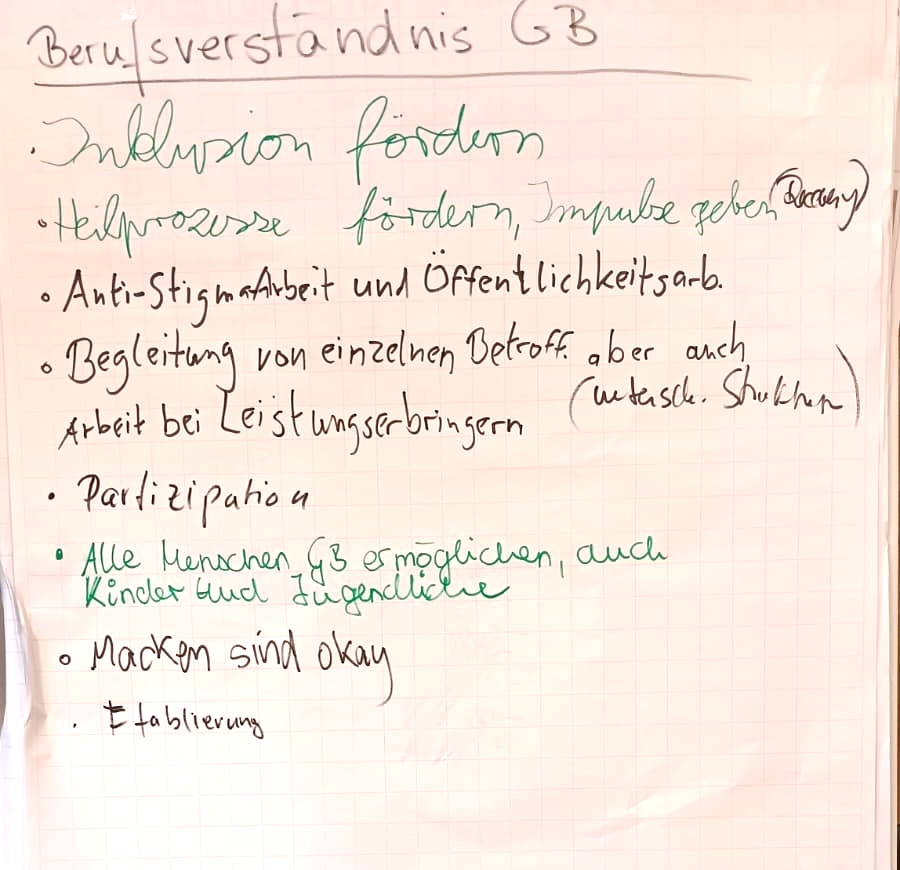 Berufsverständnis GB
• Inklusion fördern
• Heilprozesse fördern, Impulse geben (Recovery)
• Anti-Stigma-Arbeit und Öffentlichkeitsarb.
• Begleitung von einzelnen Betroff. aber auch
Arbeit bei Leistungserbringern (untersch.
• Partizipation
• Alle Menschen GB ermöglichen, auch
Kinder und Jugendliche
• Macken sind okay
• Etablierung